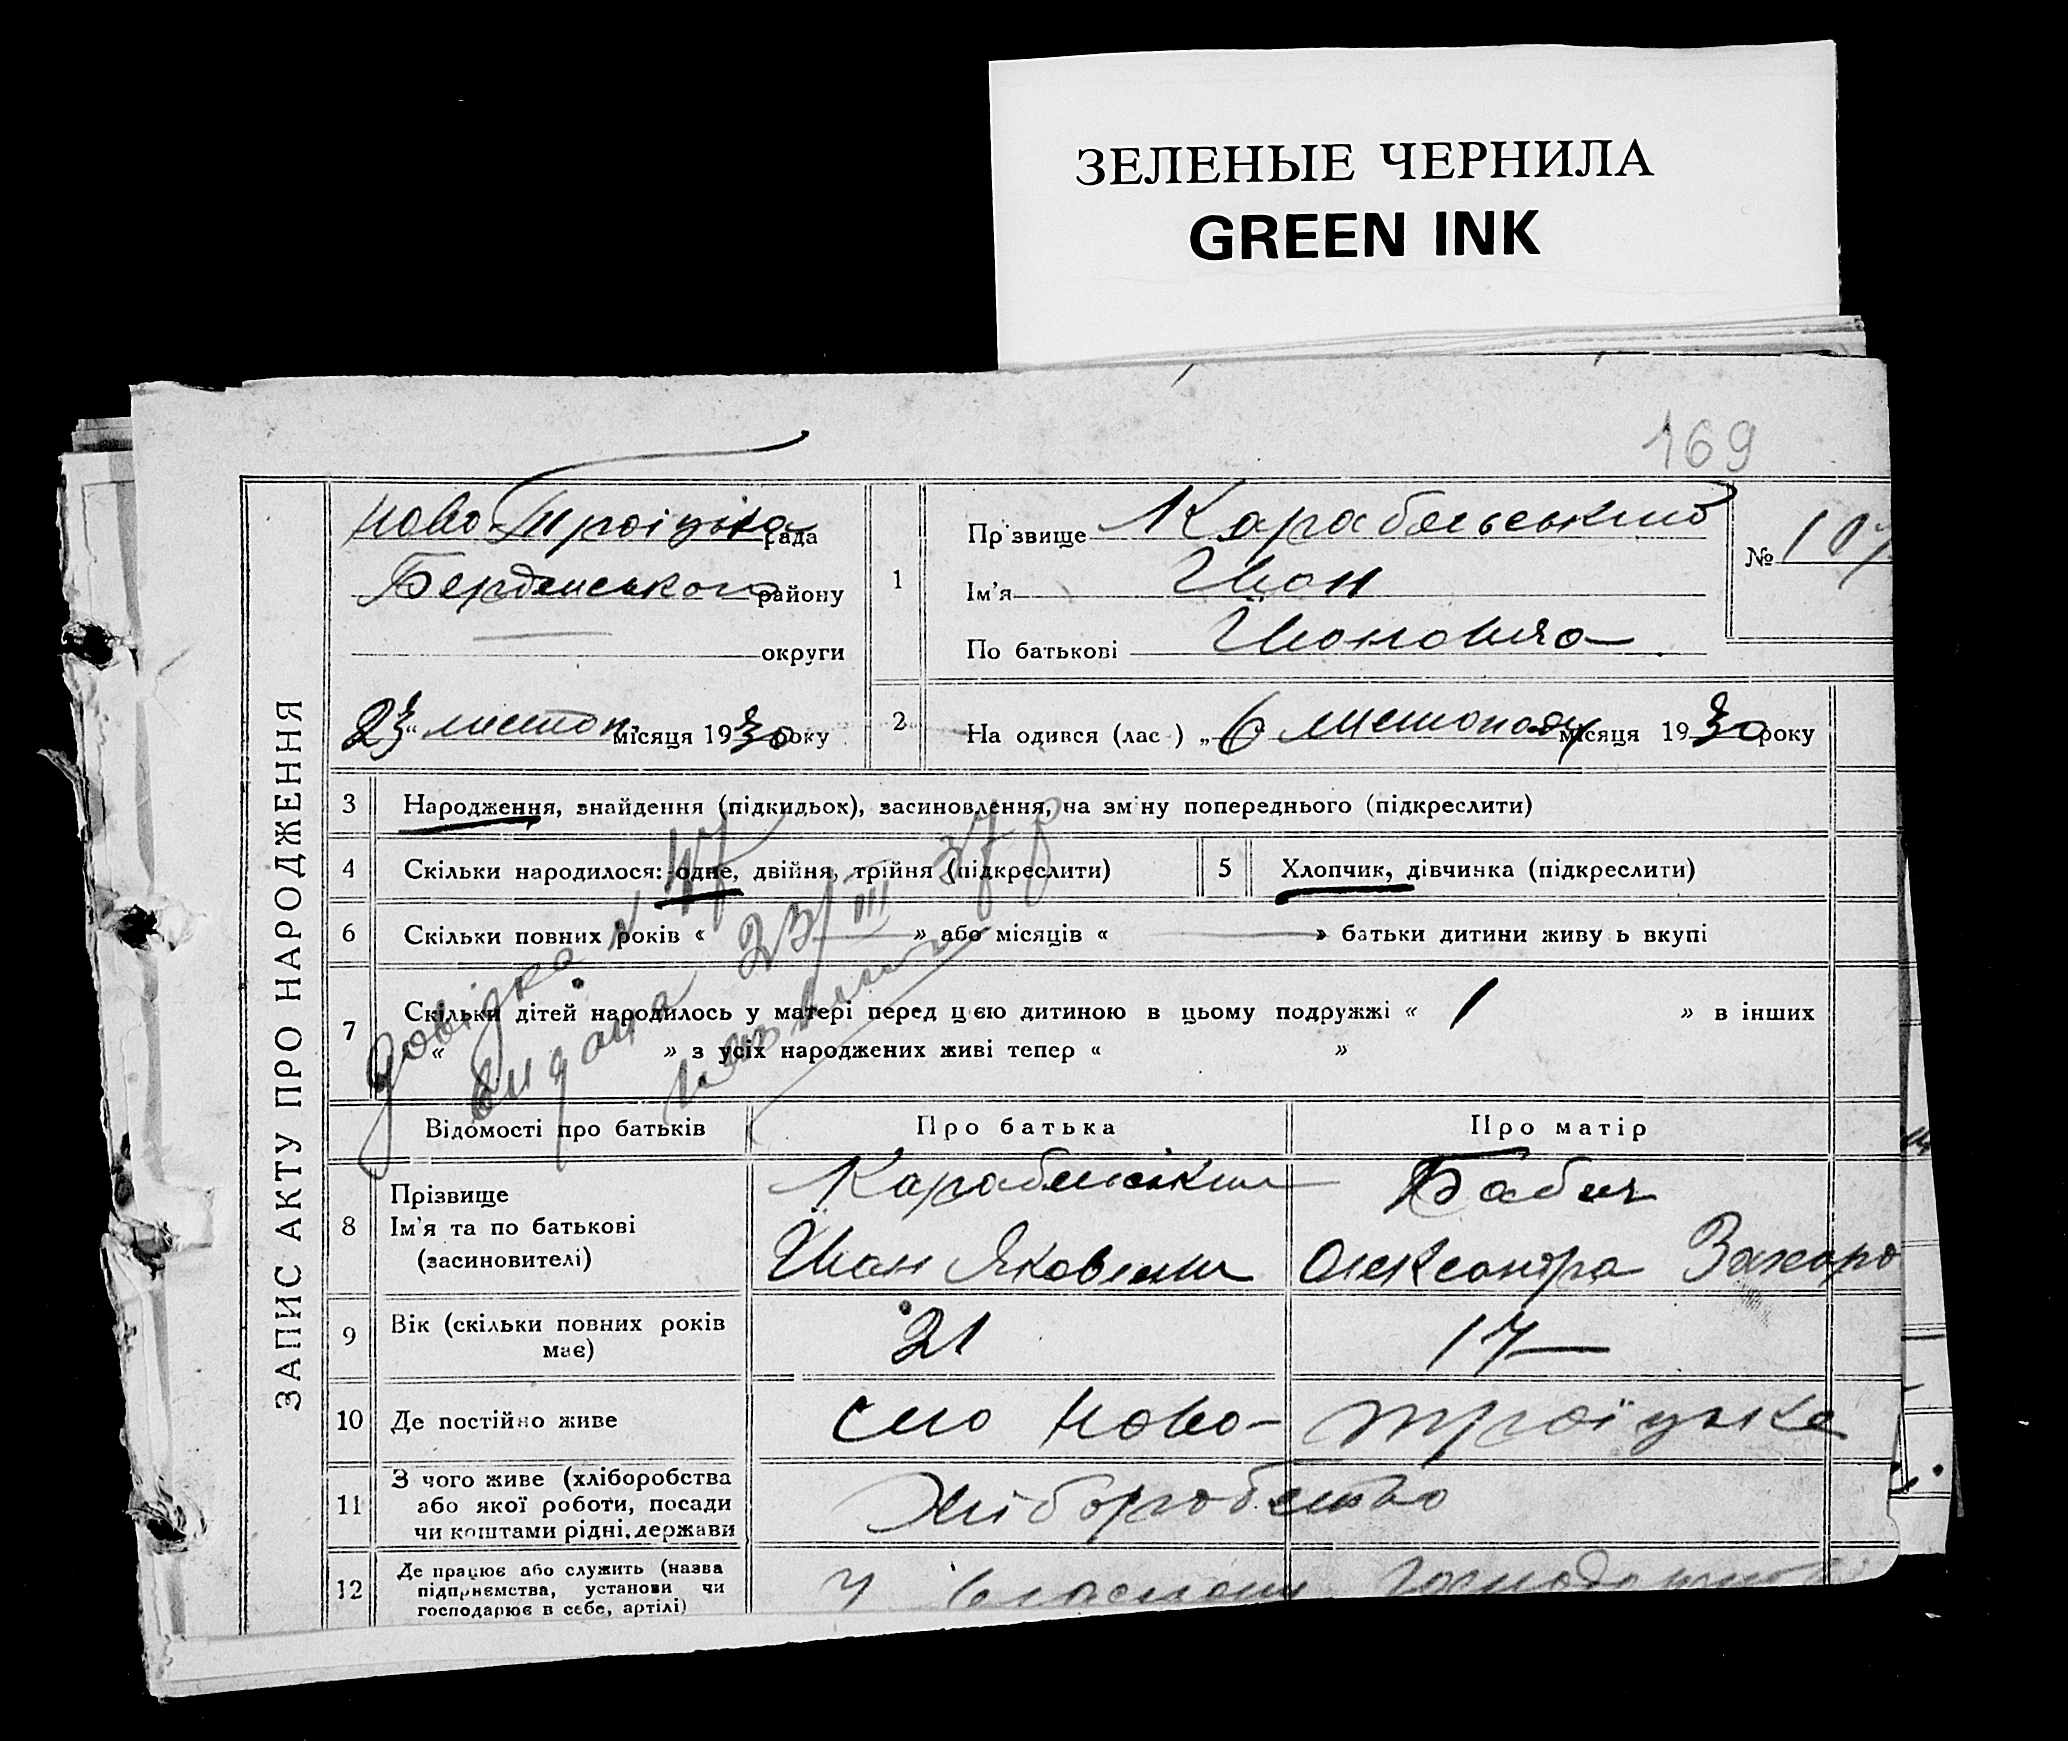 ЗЕЛЕНЫЕ ЧЕРНИЛА
GREEN INK
169
ЗАПИС АКТУ ПРО НАРОДЖЕННЯ
Ново-Троіцька рада
Бердянського району
округи
23 листоп. місяця 1930 року
1
Прізвище Карабельський
Ім'я Іван
По батькові Іванович
№ 107
2
На одився (лас ) „ 6 листопаду місяця 1930 року
3 Народження, знайдення (підкидьох), засиновлення, на зміну попереднього (підкреслити)
4 Скільки народилося: одне, двійня, трійня (підкреслити)
5 Хлопчик, дівчинка (підкреслити)
6 Скільки повних років « » або місяців « » батьки дитини живу ь вкупі
7 Скільки дітей народилось у матері перед цією дитиною в цьому подружжі « 1 » в інших
« » з усіх народжених живі тепер « »
Довідка
видана 23/III 37 р
Відомості про батьків Про батька Про матір
8 Прізвище
Ім'я та по батькові
(засиновителі)
Карабельский
Іван Яковлевич
Бабич
Олександра Захаро
9 Вік (скільки повних років
має)
21 17
10 Де постійно живе село Ново-Троїцьке
11 З чого живе (хліборобства
або якої роботи, посади
чи коштами рідні, держави
Хліборобство
12 Де працює або служить (назва
підприємства, установи чи
господарює в себе, артілі)
У власному господарстві